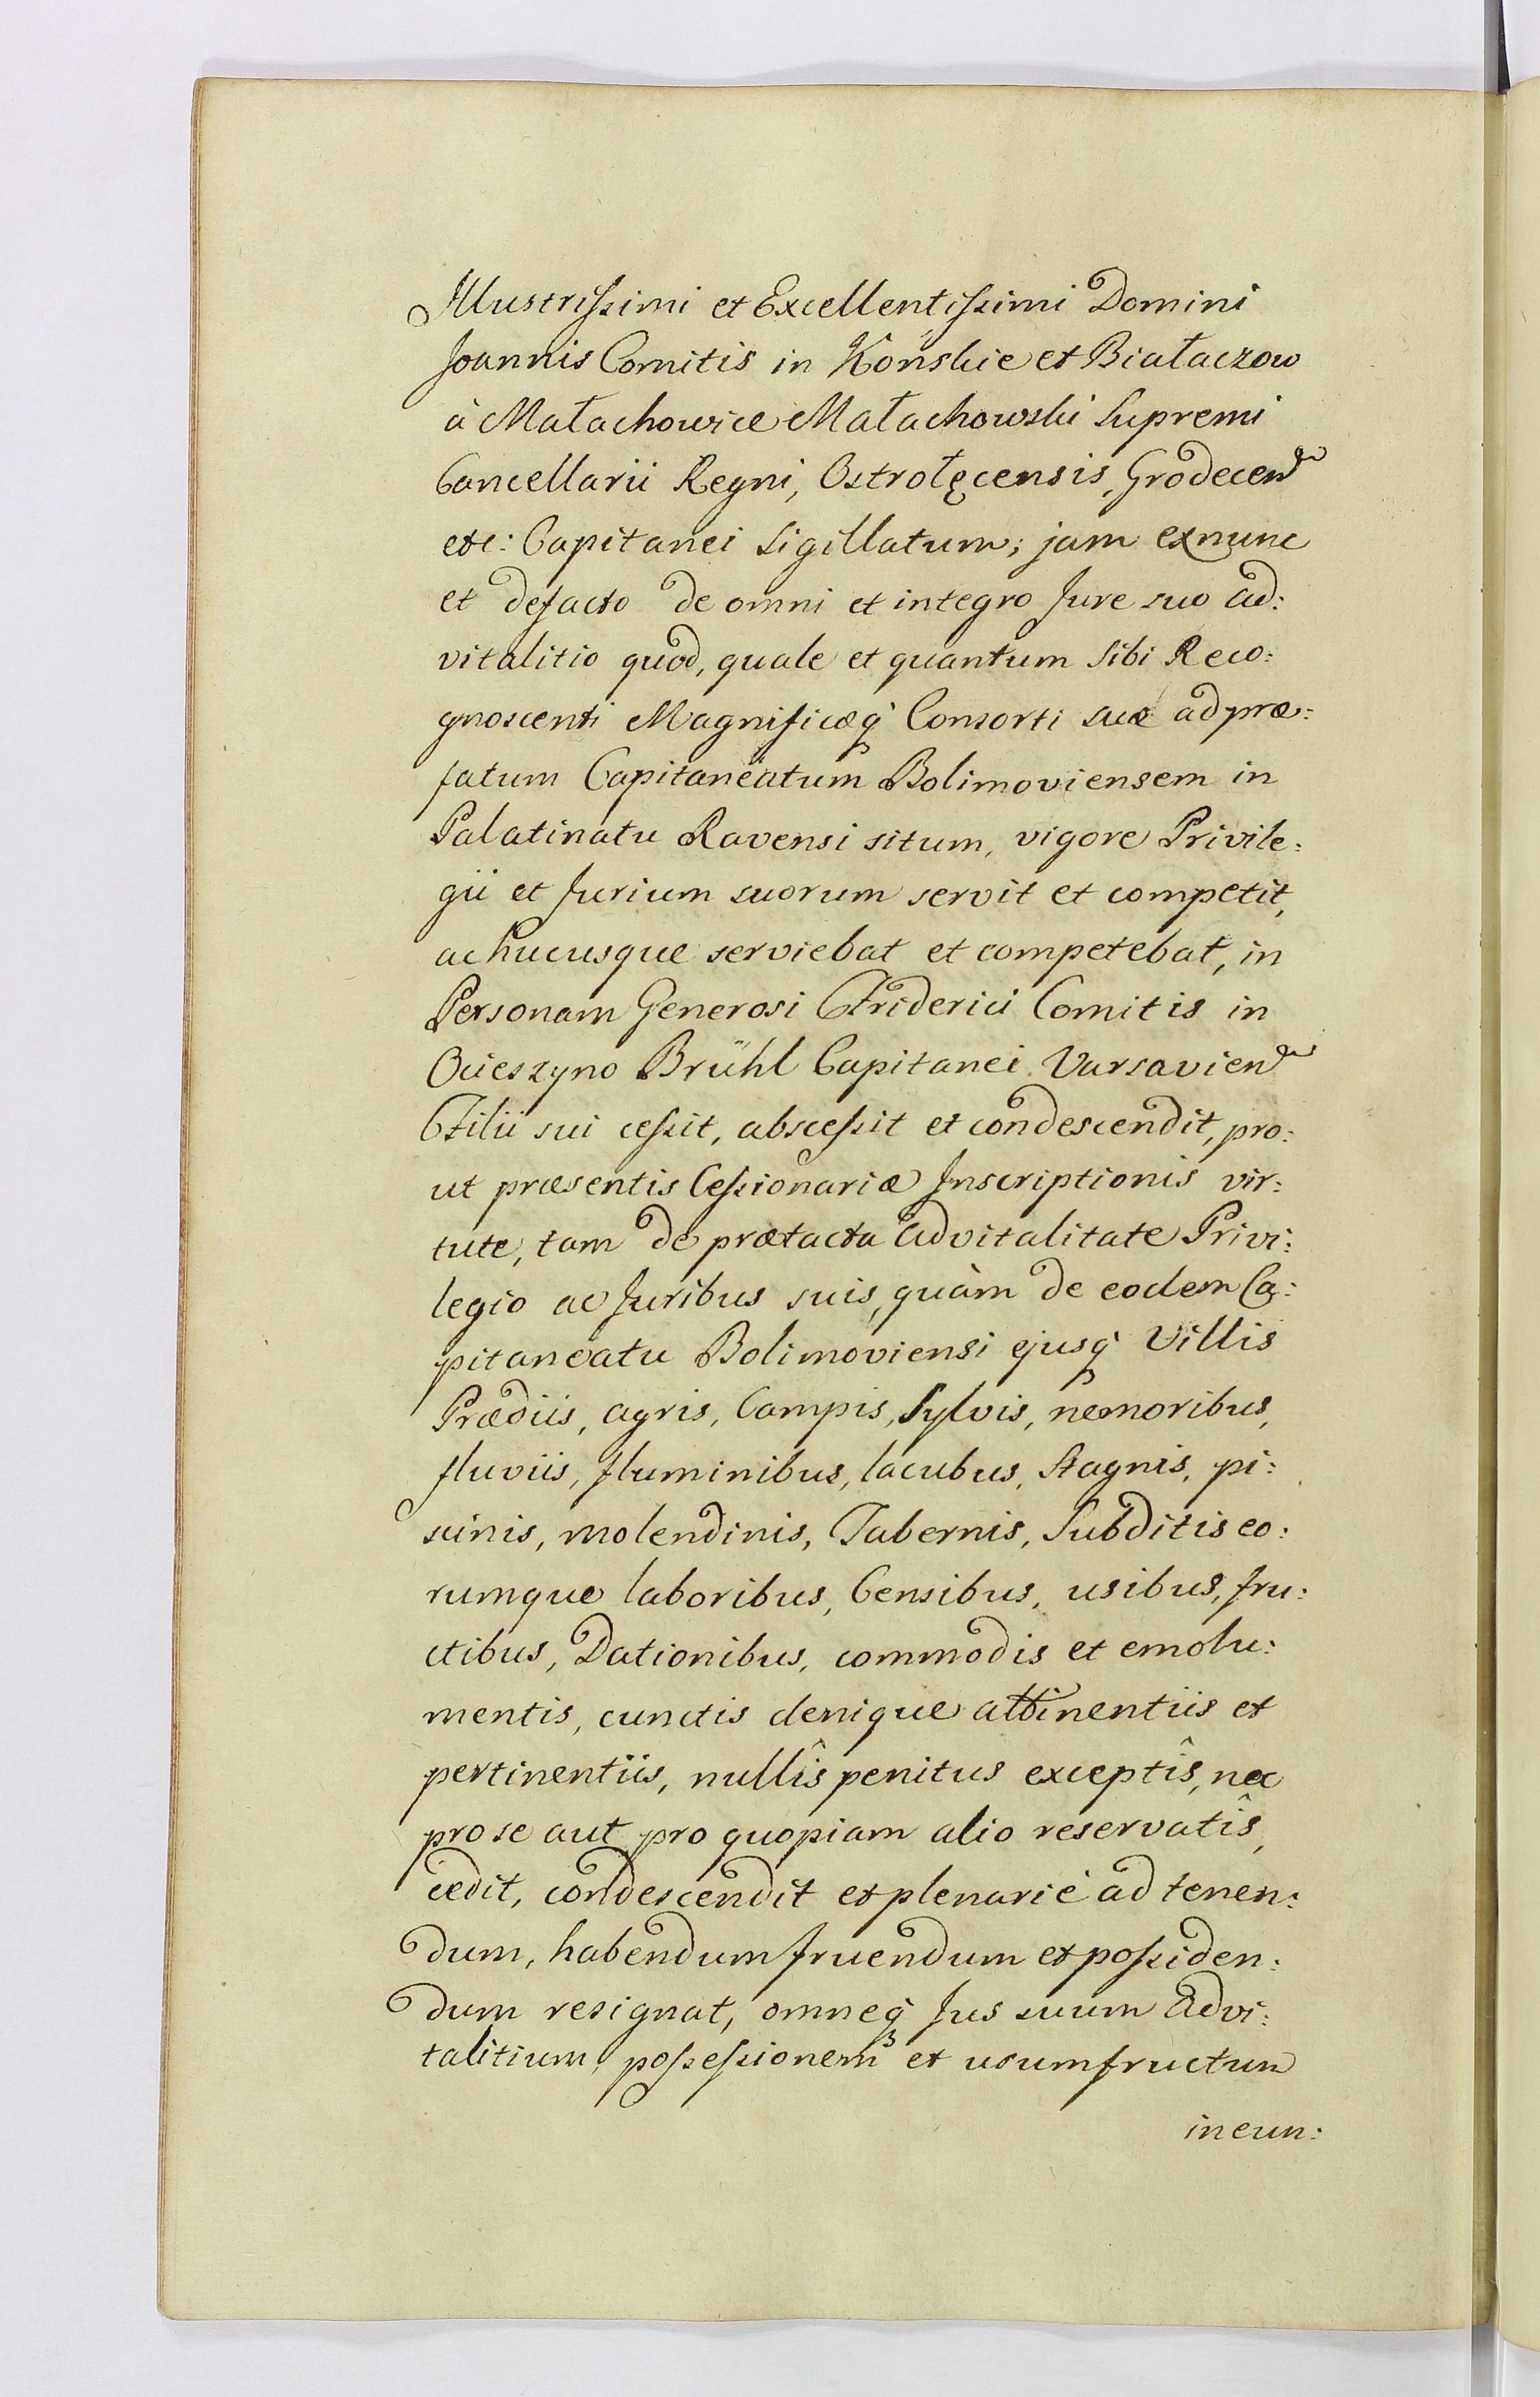 Illustrissimi et Excellentissimi Domini
Joannis Comitis in Końskie et Białaczow
à Małachowice Małachowski Supremi
Cancellarii Regni, Ostrołęcensis, Grodecen
etc: Capitanei Sigillatum; jam exnunc
et defacto de omni et integro Jure suo ad:
vitalitio quod, quale et quantum Sibi Reco:
gnoscenti Magnificæq̀ Consorti suæ ad præ:
fatum Capitaneatum Bolimoviensem in
Palatinatu Ravensi situm, vigore Privile:
gii et Jurium suorum servit et competit,
ac hucusque serviebat et competebat, in
Personam Generosi Friderici Comitis in
Ocieszyno Brühl Capitanei Varsavien
Filii sui cessit, abscessit et condescendit, pro:
ut præsentis Cessionariæ Inscriptionis vir:
tute, tam de prætacta advitalitate Privi:
legio ac Juribus suis, quàm de eodem Ca:
pitaneatu Bolimoviensi ejusq̀ Villis
Prædiis, agris, Campis, Sylvis, nemoribus,
fluviis, fluminibus, lacubus, Stagnis, pi:
scinis, molendinis, Tabernis, Subditis eo:
rumque laboribus, Censibus, usibus, fru:
ctibus, Dationibus, commodis et emolu:
mentis, cunctis denique attinentiis et
pertinentiis, nullîs penitus exceptîs, nec
pro se aut pro quopiam alio reservatîs,
cedit, condescendit et plenariè ad tenen:
dum, habendum fruendum et possiden:
dum resignat, omneq̀ Jus suum Advi:
talitium, possessionem et usumfructum
in eun: